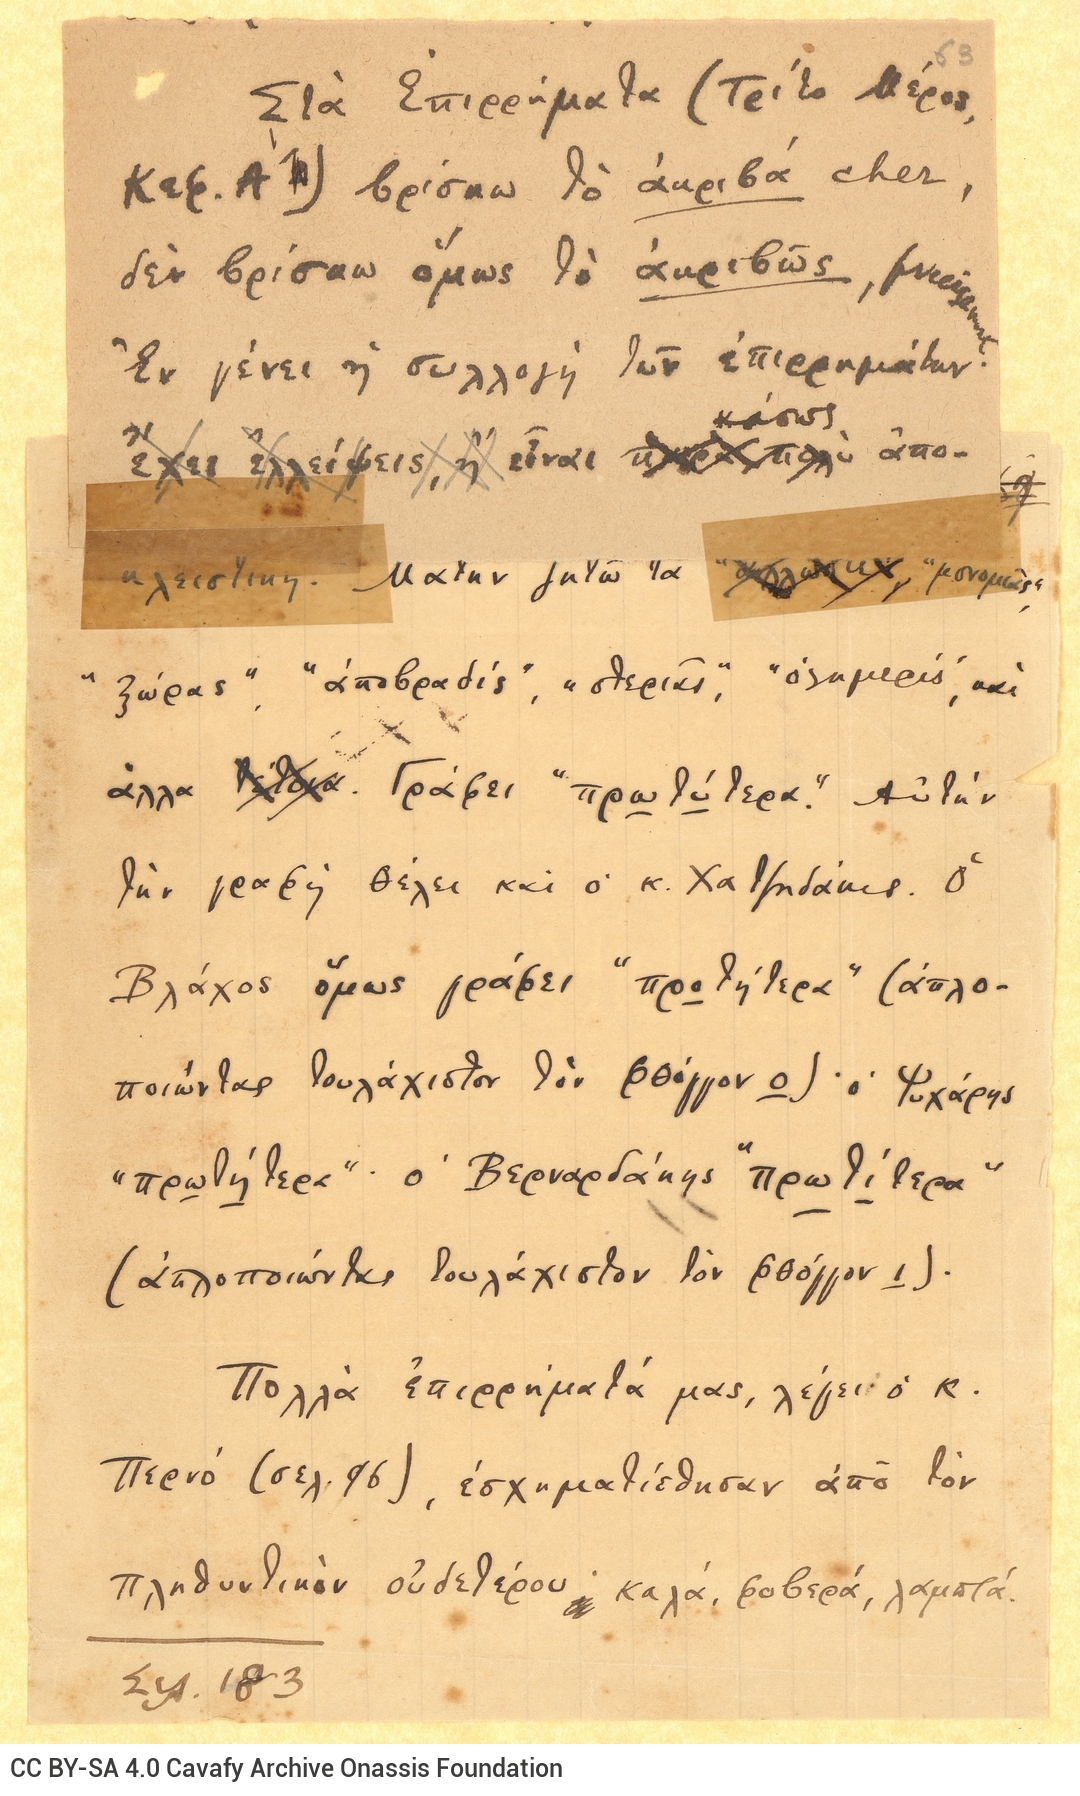 63
Στὰ Ἐπιρρήματα (Τρίτο Μέρος,
Κεφ. Α΄) βρίσκω τὸ ἀκριβά cher,
δὲν βρίσκω ὅμως τὸ ἀκριβῶς,
Ἐν γένει ἡ συλλογὴ τῶν ἐπιρρημάτων
κάπως
ἔχει ἐλλείψεις, ἢ εἶναι πολὺ ἀπο-
κλειστική. Μάτην ζητῶ τὰ "μονομιᾶς",
"ξώρας", "ἀποβραδίς", "στεριᾶς", "ὁλημερίς", καὶ
ἄλλα τέτοια. Γράφει "πρωτύτερα." Αὐτὴν
τὴν γραφὴ θέλει καὶ ὁ κ. Χατζηδάκις. Ὁ
Βλάχος ὅμως γράφει "προτήτερα" (ἁπλο-
ποιώντας τουλάχιστον τὸν φθόγγον ο)· ὁ Ψυχάρης
"πρωτήτερα"· ὁ Βερναρδάκης "πρωτίτερα"
(ἁπλοποιώντας τουλάχιστον τὸν φθόγγον ι).
Πολλὰ ἐπιρρήματά μας, λέγει ὁ κ.
Περνό (σελ. 96), ἐσχηματίσθησαν ἀπὸ τὸν
πληθυντικὸν οὐδετέρου· καλά, φοβερά, λαμπρά.
Σελ. 183
CC BY-SA 4.0 Cavafy Archive Onassis Foundation